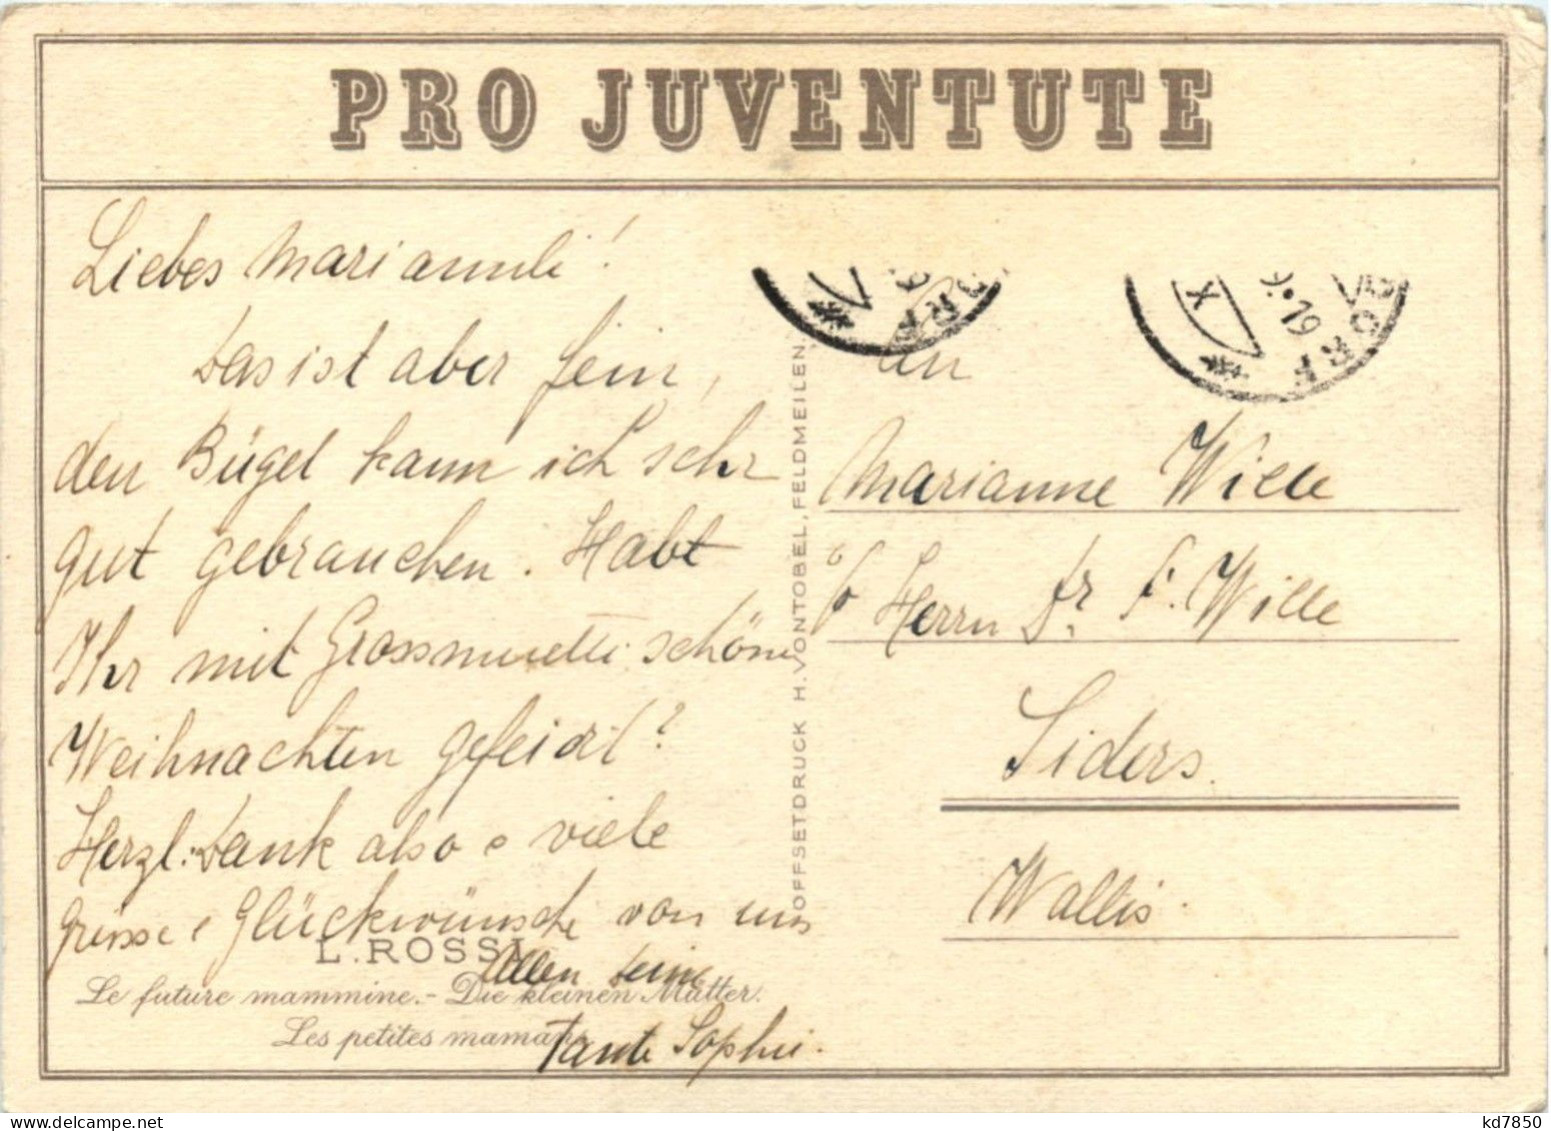 PRO JUVENTUTE
Liebes Mariannli!
Das ist aber fein,
den Bügel kann ich sehr
gut gebrauchen. Habt
Ihr mit Grossmuetti schöne
Weihnachten gefeiert?
Herzl. Dank also & viele
Grüsse & Glückwünsche von uns
Allen Deine
Tante Sophie.
L. ROSSI
Le future mammine. - Die kleinen Mütter.
Les petites mamans.
OFFSETDRUCK H. VONTOBEL, FELDMEILEN.
ORF
X
9.•19
DORF
An
Marianne Wille
c/o Herrn Dr. F. Wille
Siders.
Wallis.
delcampe.net
kd7850